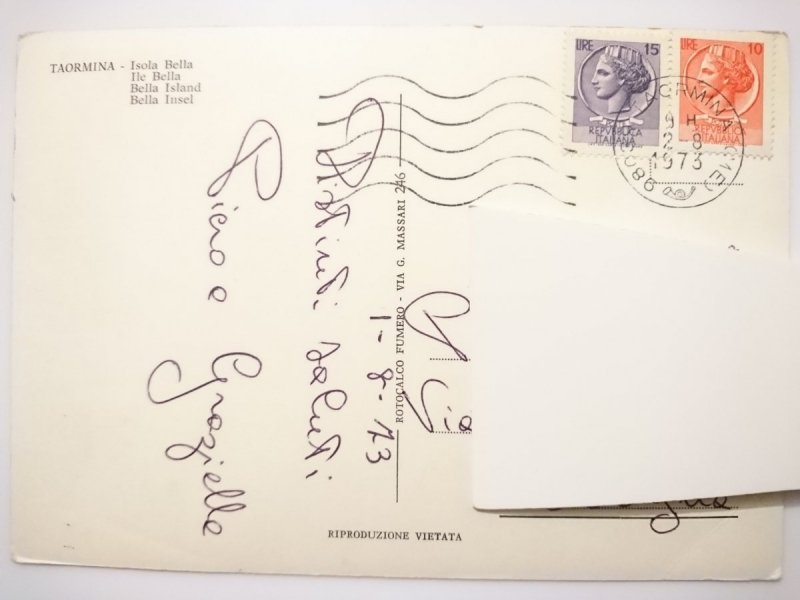 TAORMINA - Isola Bella
Ile Bella
Bella Island
Bella Insel
LIRE 15
REPVBBLICA
ITALIANA
LIRE 10
REPVBBLICA
ITALIANA
TAORMINA (ME)
9 H
2 8
1973
98039
1-8-73
Distinti saluti
Piero e Graziella
ROTOCALCO FUMERO - VIA G. MASSARI 246
RIPRODUZIONE VIETATA